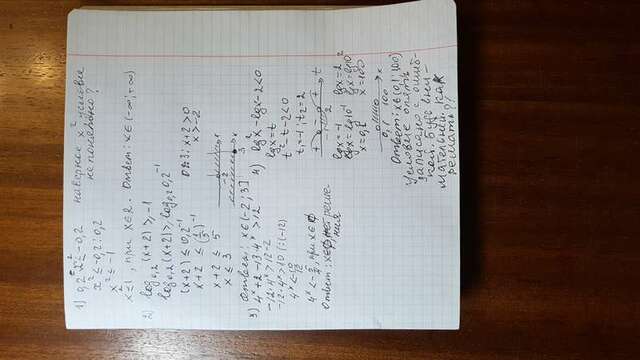 1) 0,2 x² ≤ -0,2 наверное x², условие
непонятно?
x² ≤ -0,2 : 0,2
x² ≤ -1
x ≤ 1, при x∈R. Ответ: x∈(-∞; +∞)
2) log₀,₂ (x+2) ≥ -1
log₀,₂ (x+2) ≥ log₀,₂ 0,2⁻¹
(x+2) ≤ 0,2⁻¹ ОДЗ: x+2 > 0
x+2 ≤ (1/5)⁻¹ x > -2
x+2 ≤ 5
x ≤ 3
-2 3 x
Ответ: x∈(-2; 3]
3) 4ˣ + 2 - 13·4ˣ > 12
-12·4ˣ > 12-2
-12·4ˣ > 10 (:(-12)
4ˣ < 10/12
при x∈∅
Ответ: x∈∅, нет реше-
ния
4) lg²x - lgx - 2 < 0
lgx = t
t² - t - 2 < 0
t₁ = -1; t₂ = 2
+ - + t
-1 2
lgx = -1 lgx = 2
lgx = lg10⁻¹ lgx = lg10²
x = 0,1 x = 100
0,1 100 x
Ответ: x∈(0,1; 100)
Условие опять
записано с ошиб-
кой. Будь вни-
мательней. Как
решать?!